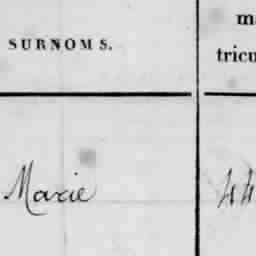 SURNOMS.
m
tricu
Marie
44